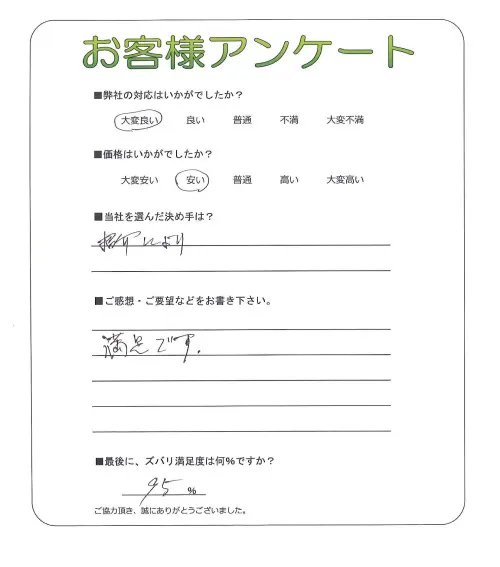 お客様アンケート
■弊社の対応はいかがでしたか？
大変良い 良い 普通 不満 大変不満
■価格はいかがでしたか？
大変安い 安い 普通 高い 大変高い
■当社を選んだ決め手は？
紹介により
■ご感想・ご要望などをお書き下さい。
満足です.
■最後に、ズバリ満足度は何%ですか？
95 %
ご協力頂き、誠にありがとうございました。